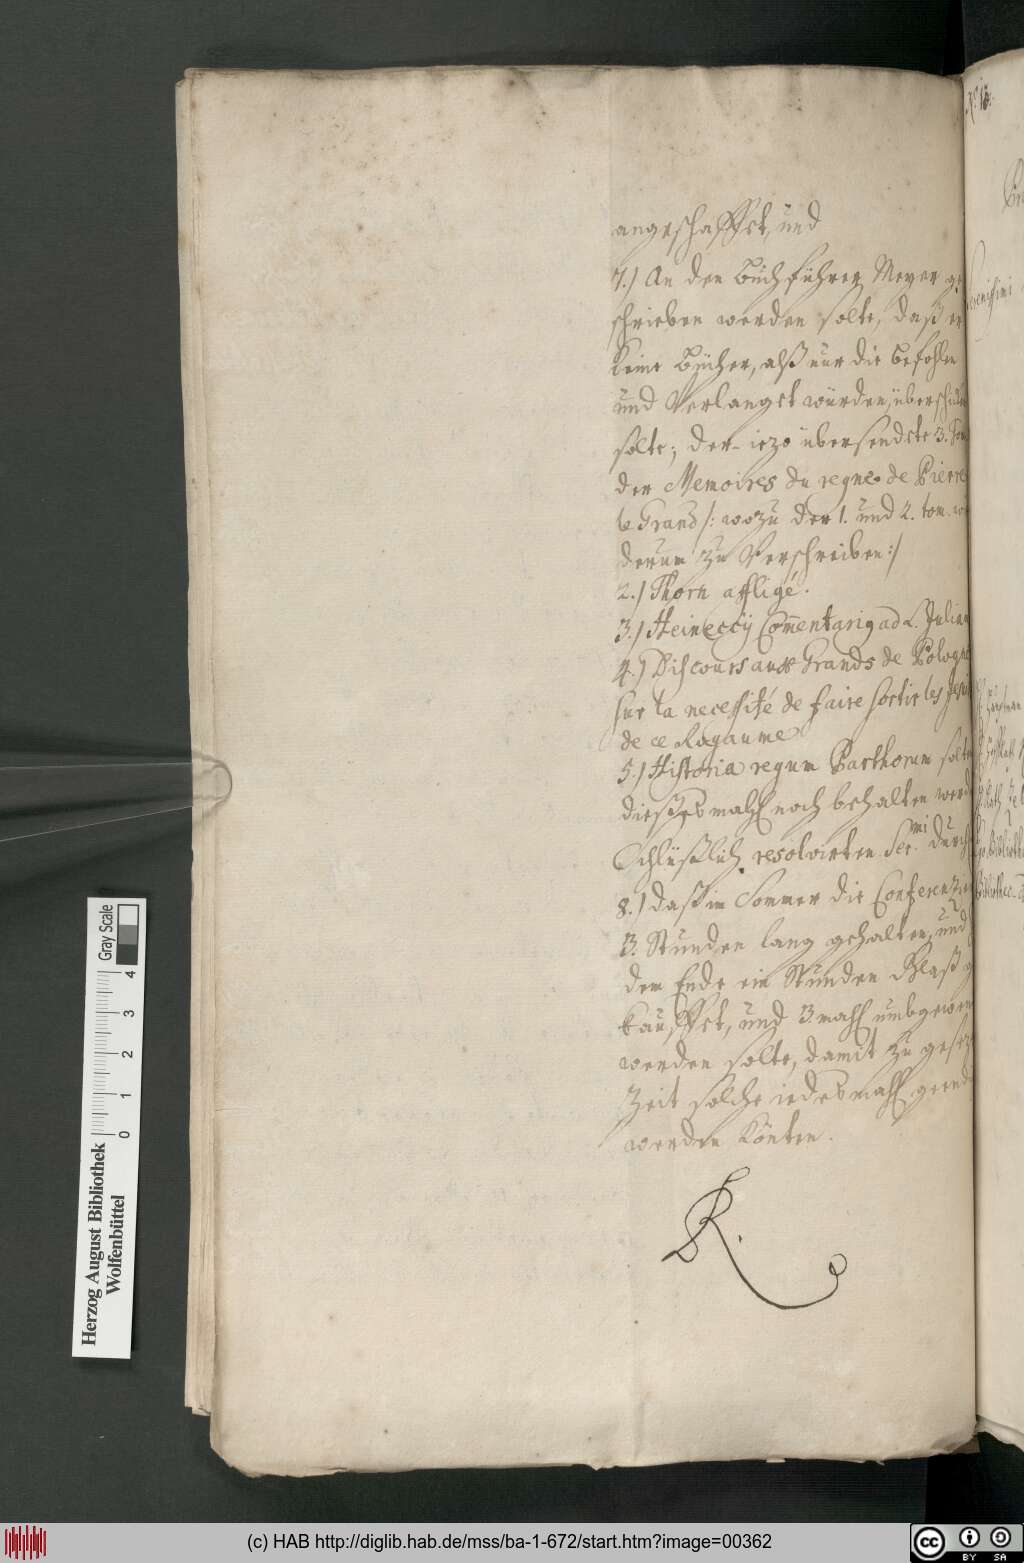 angeschaffet, und
7.) An den Buchführer Meyer ge
schrieben werden solte, daß er
keine Bücher, alß nur die befohlen
und Verlanget würden, überschicken
solte; der iezo übersendete 3. Tom
der Memoires du regne de Pierre
le Grand /: wozu der 1. und 2. tom. wi
derum zu Verschreiben :/
2.) Thorn affligé.
3.) Heineccÿ Commentarig ad L. Juliam
4.) Discours aux Grands de Pologne
sur la necessité de faire sortir les Jesui
de ce Rogaume
5.) Historia regum Parthorum solte
dießesmahl noch behalten werd
Schlüßlich resolvirten Ser.mi Durchl
8.) daß im Sommer die Conferenzien
3. Stunden lang gehalten, und
dem Ende ein Stunden Glaß g
kauffet, und 3. mahl umbgewen
werden solte, damit zu gesez
Zeit solche iedesmahl geend
werden könten.
R.
No 13.
Serenissimi
Herzog August Bibliothek
Wolfenbüttel
Gray Scale
0 1 2 3 4
(c) HAB http://diglib.hab.de/mss/ba-1-672/start.htm?image=00362
cc BY SA